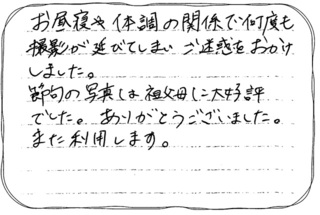 お昼寝や体調の関係で何度も
撮影が延びてしまいご迷惑をおかけ
しました。
節句の写真は祖父母に大好評
でした。ありがとうございました。
また利用します。